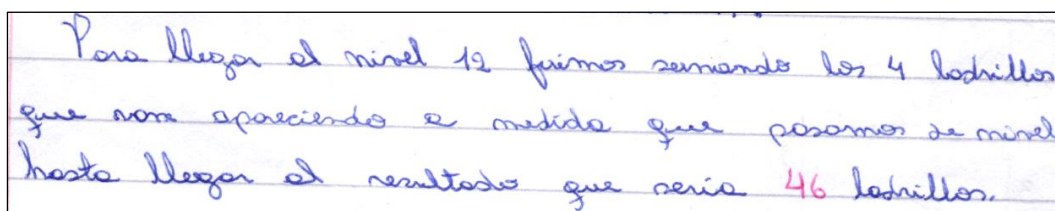 Para llegar al nivel 12 fuimos sumando los 4 ladrillos
que van apareciendo a medida que pasamos de nivel
hasta llegar al resultado que seria 46 ladrillos.